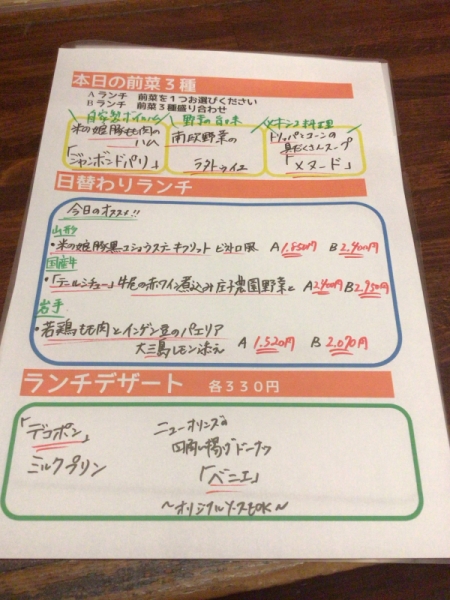 本日の前菜３種
Ａランチ　前菜を１つお選びください
Ｂランチ　前菜３種盛り合わせ
自家製ボイルハム
米の娘豚もも肉の
ハム
「ジャンボンドパリ」
野菜の旨味
南欧野菜の
ラタトゥイユ
メキシコ料理
トリッパとコーンの
具だくさんスープ
「メヌード」
日替わりランチ
今日のオススメ!!
山形
・米の娘豚黒コショウステーキフリット ビストロ風 A 1.850円 B 2.400円
国産牛
・「テールシチュー」牛尾の赤ワイン煮込み 庄子農園野菜と A 2400円 B 2.950円
岩手
・若鶏もも肉とインゲン豆のパエリア
大三島レモン添え A 1.520円 B 2.070円
ランチデザート　各３３０円
「デコポン」
ミルクプリン
ニューオリンズの
四角い揚げドーナツ
「ベニエ」
～オリジナルソースもOK～